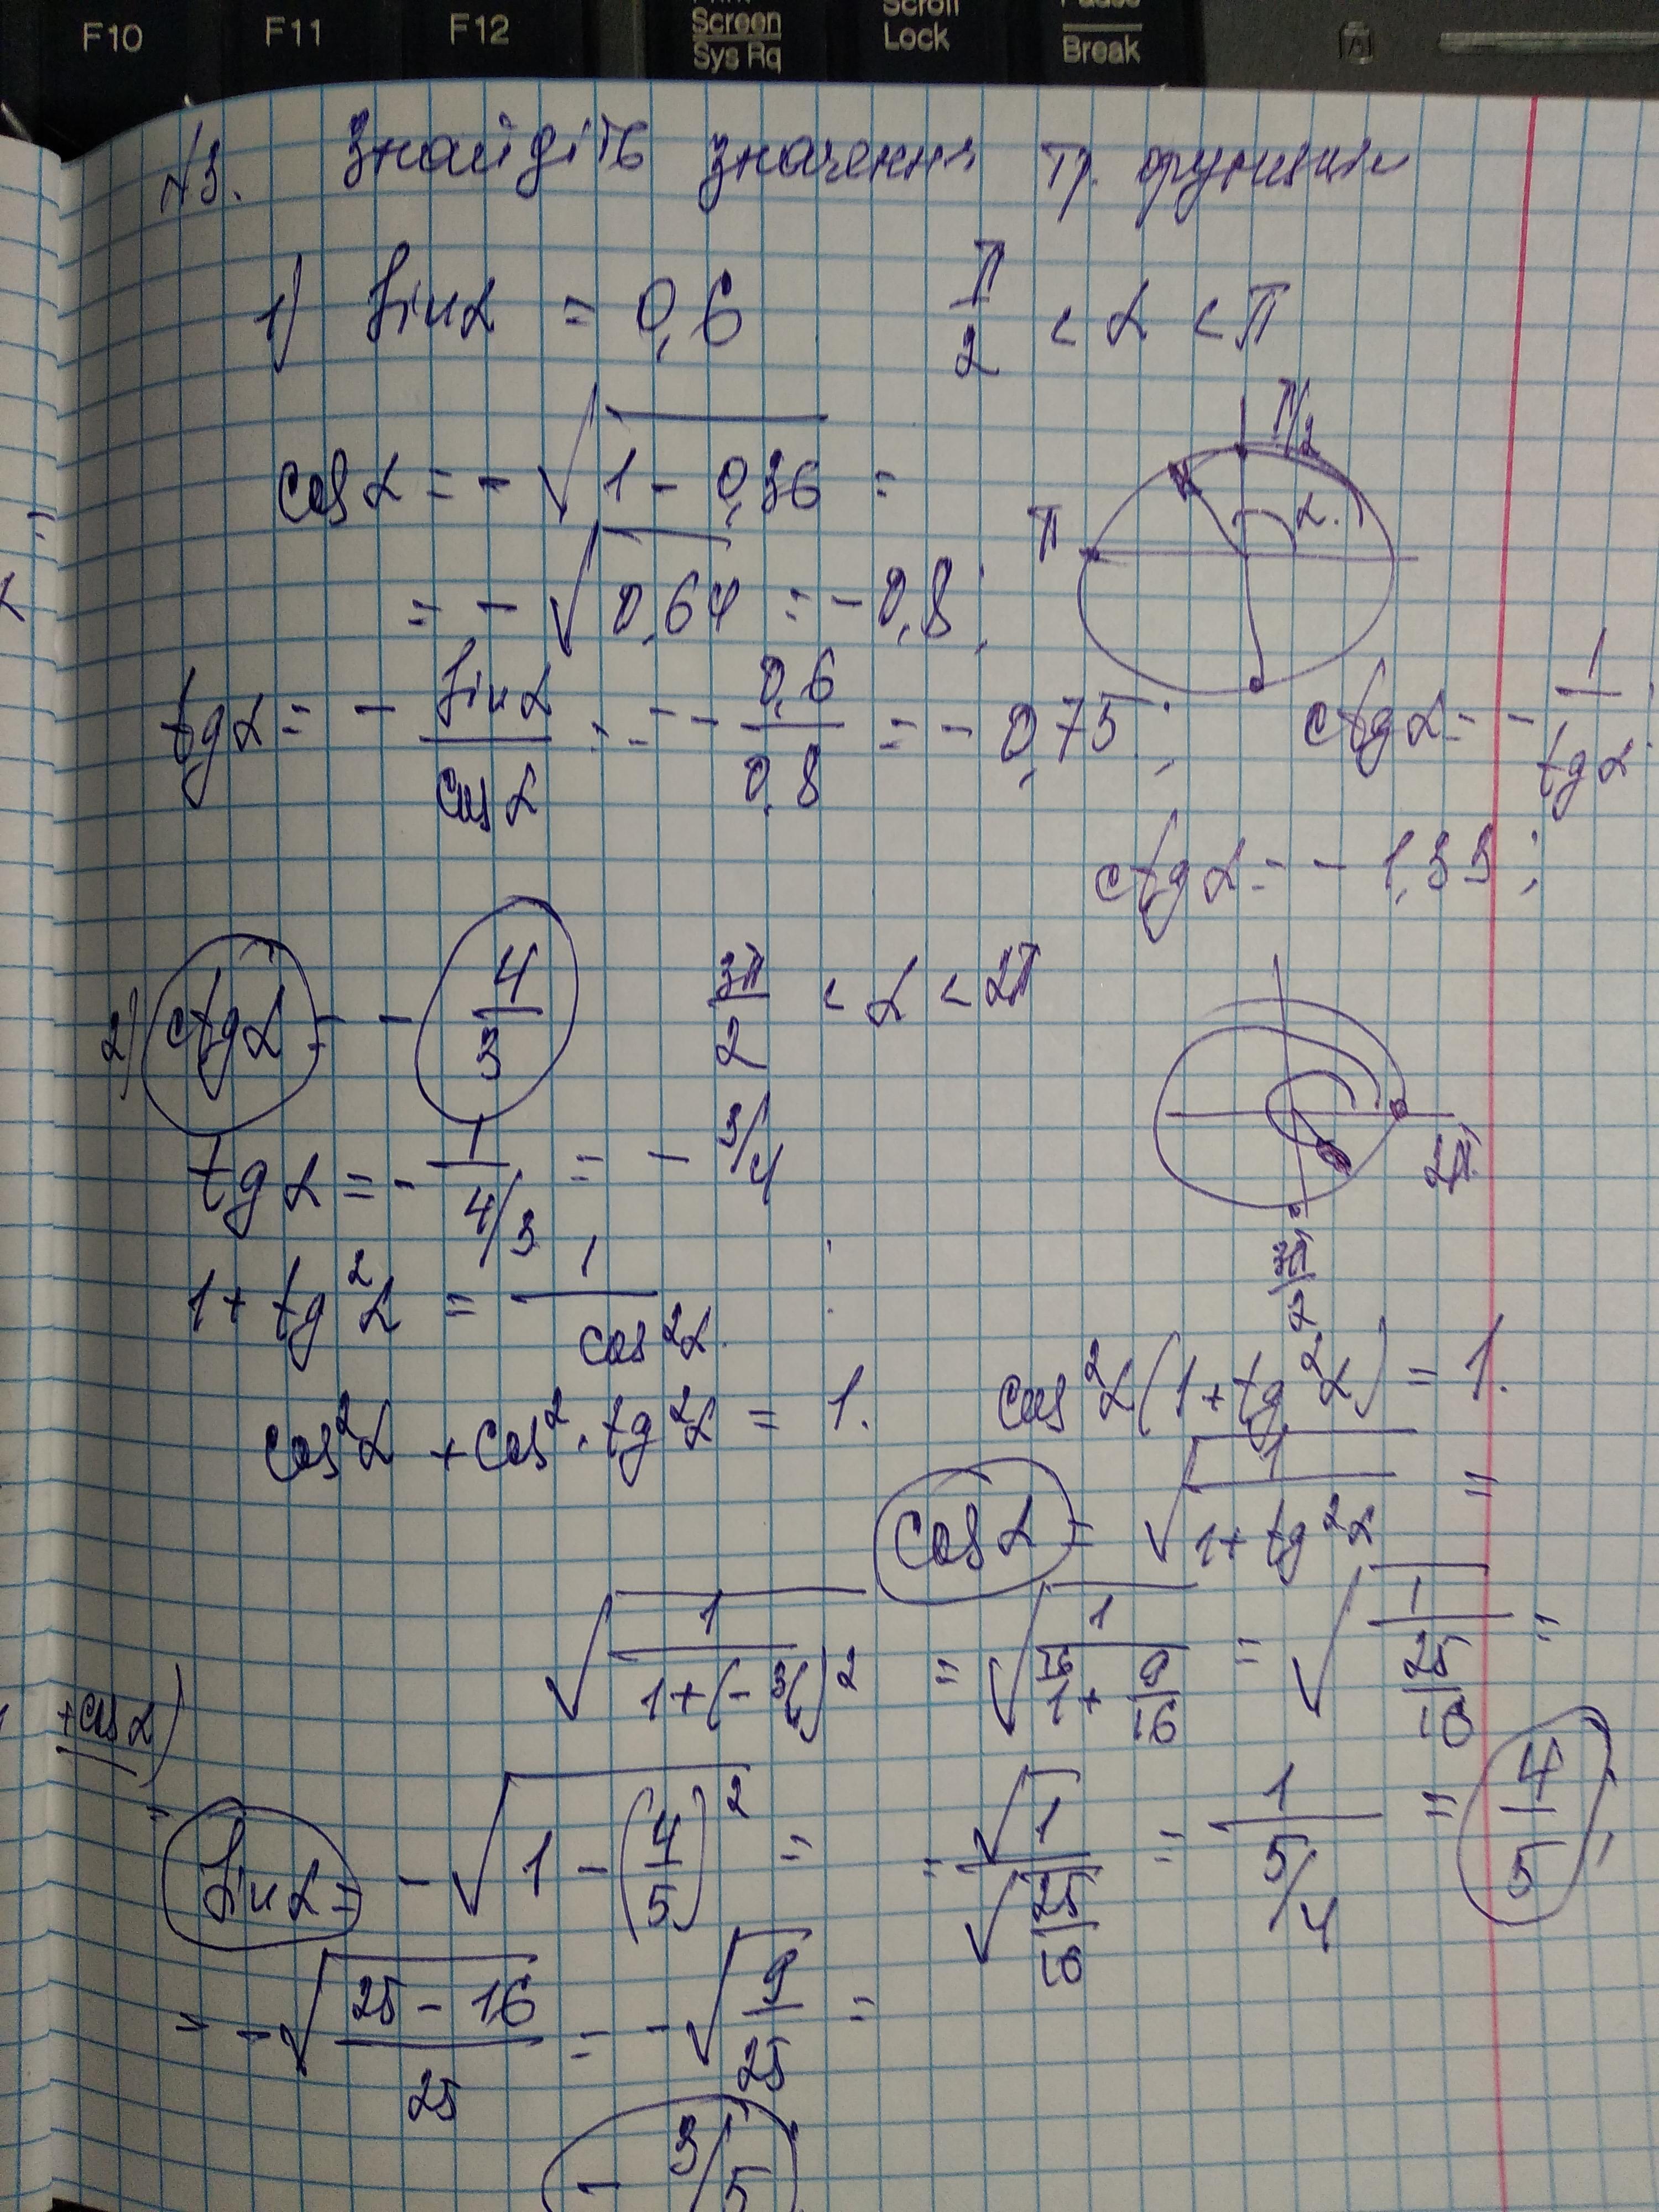 F10 F11 F12 Screen Sys Rq Scroll Lock Pause Break
№3. Знайдіть значення тр. функцій
1) sin α = 0,6 π/2 < α < π
cos α = - √(1 - 0,36) =
π/2
π α
= - √0,64 = - 0,8;
tg α = - sin α / cos α = = - 0,6/0,8 = - 0,75; ctg α = - 1/tg α
ctg α = - 1,33;
2) ctg α = - 4/3 3π/2 < α < 2π
2π
3π/2
tg α = - 1/(4/3) = - 3/4
1 + tg²α = 1/cos²α.
cos²α + cos² · tg²α = 1. cos²α(1 + tg²α) = 1.
cos α = √(1/(1 + tg²α)) =
√(1/(1 + (- 3/4)²)) = √(1/(16/1 + 9/16)) = √(1/(25/16)) =
+cos α)
= √1/√(25/16) = 1/(5/4) = 4/5;
sin α = - √(1 - (4/5)²) =
= - √((25 - 16)/25) = - √(9/25) =
- 3/5